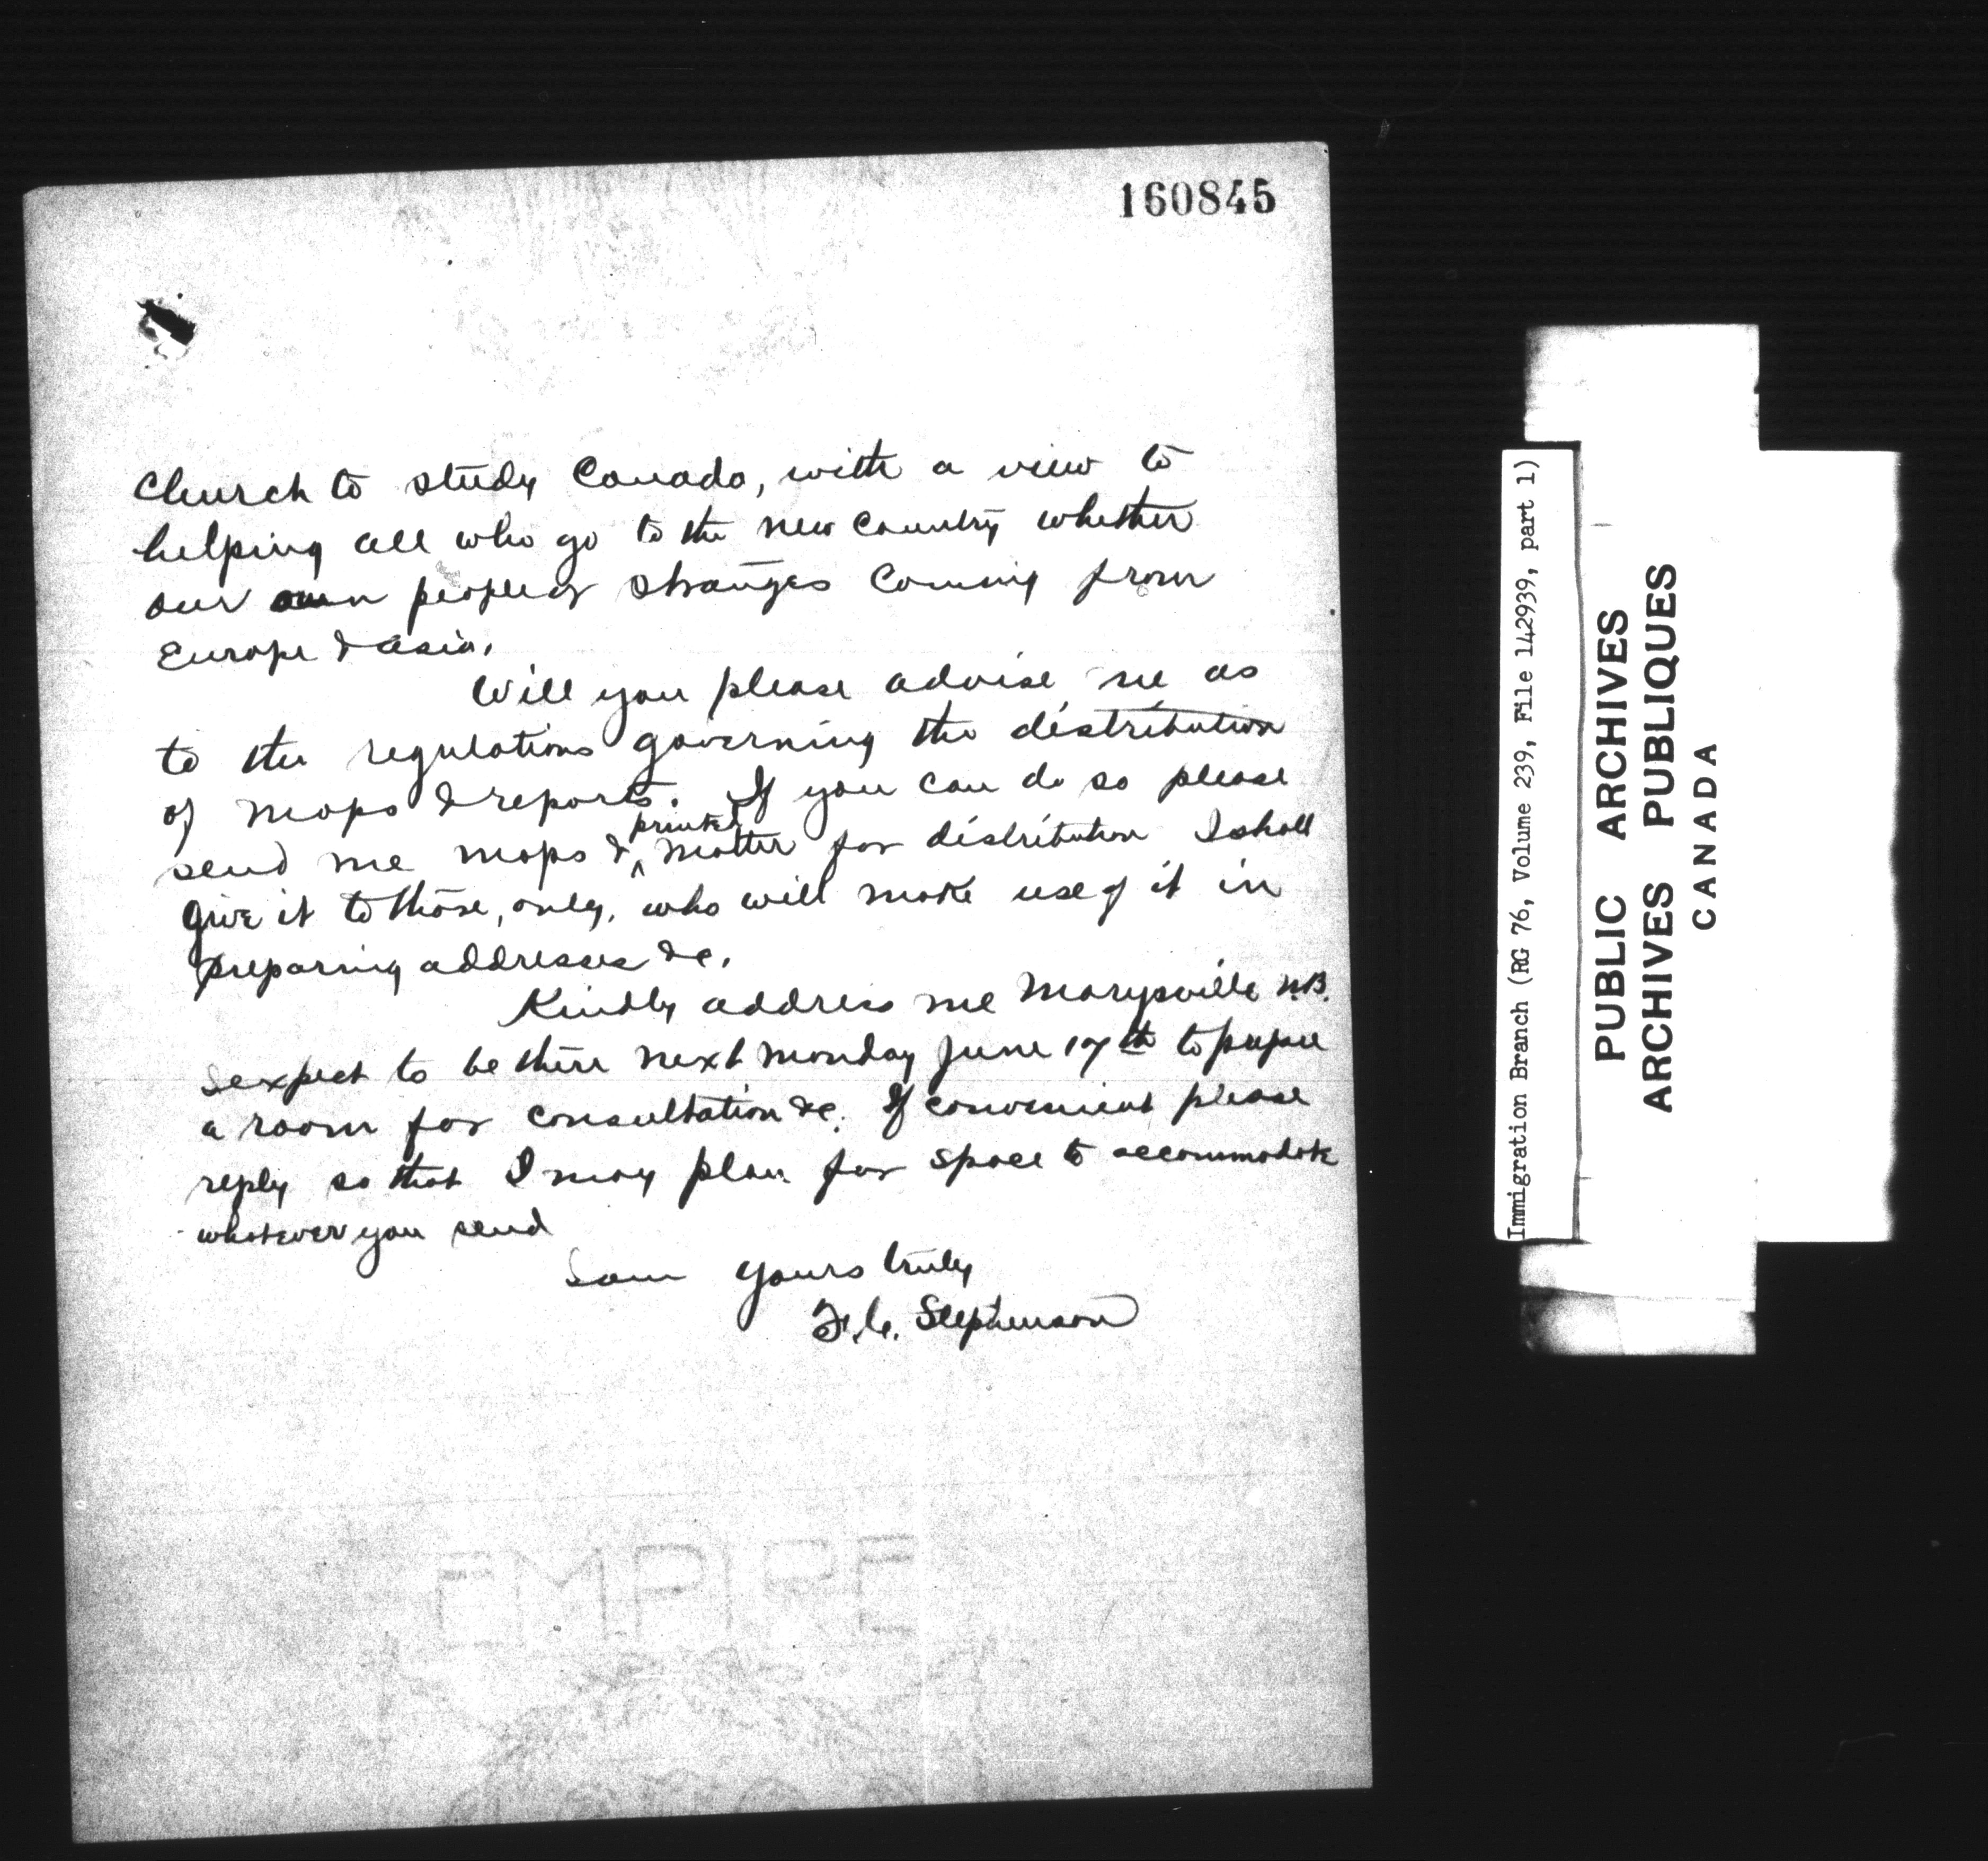 160845
Church to study Canada, with a view to
helping all who go to the new country whether
our own people or strangers coming from
Europe & Asia.
Will you please advise me as
to the regulations governing the distribution
of maps & reports. If you can do so please
send me maps & printed matter for distribution I shall
give it to those, only, who will make use of it in
preparing addresses &c.
Kindly address me Marysville N.B.
I expect to be there next Monday June 17th to prepare
a room for consultation &c. If convenient please
reply so that I may plan for space to accommodate
whatever you send
I am yours truly
F. C. Stephenson
EMPIRE
Immigration Branch (RG 76, Volume 239, File 142939, part 1)
PUBLIC ARCHIVES
ARCHIVES PUBLIQUES
CANADA